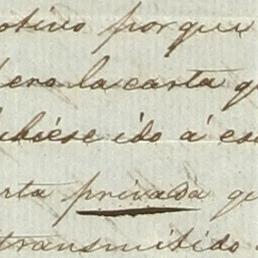 otivo porque
era la carta q
ubiése ido á es
rta privada qu
transmitido